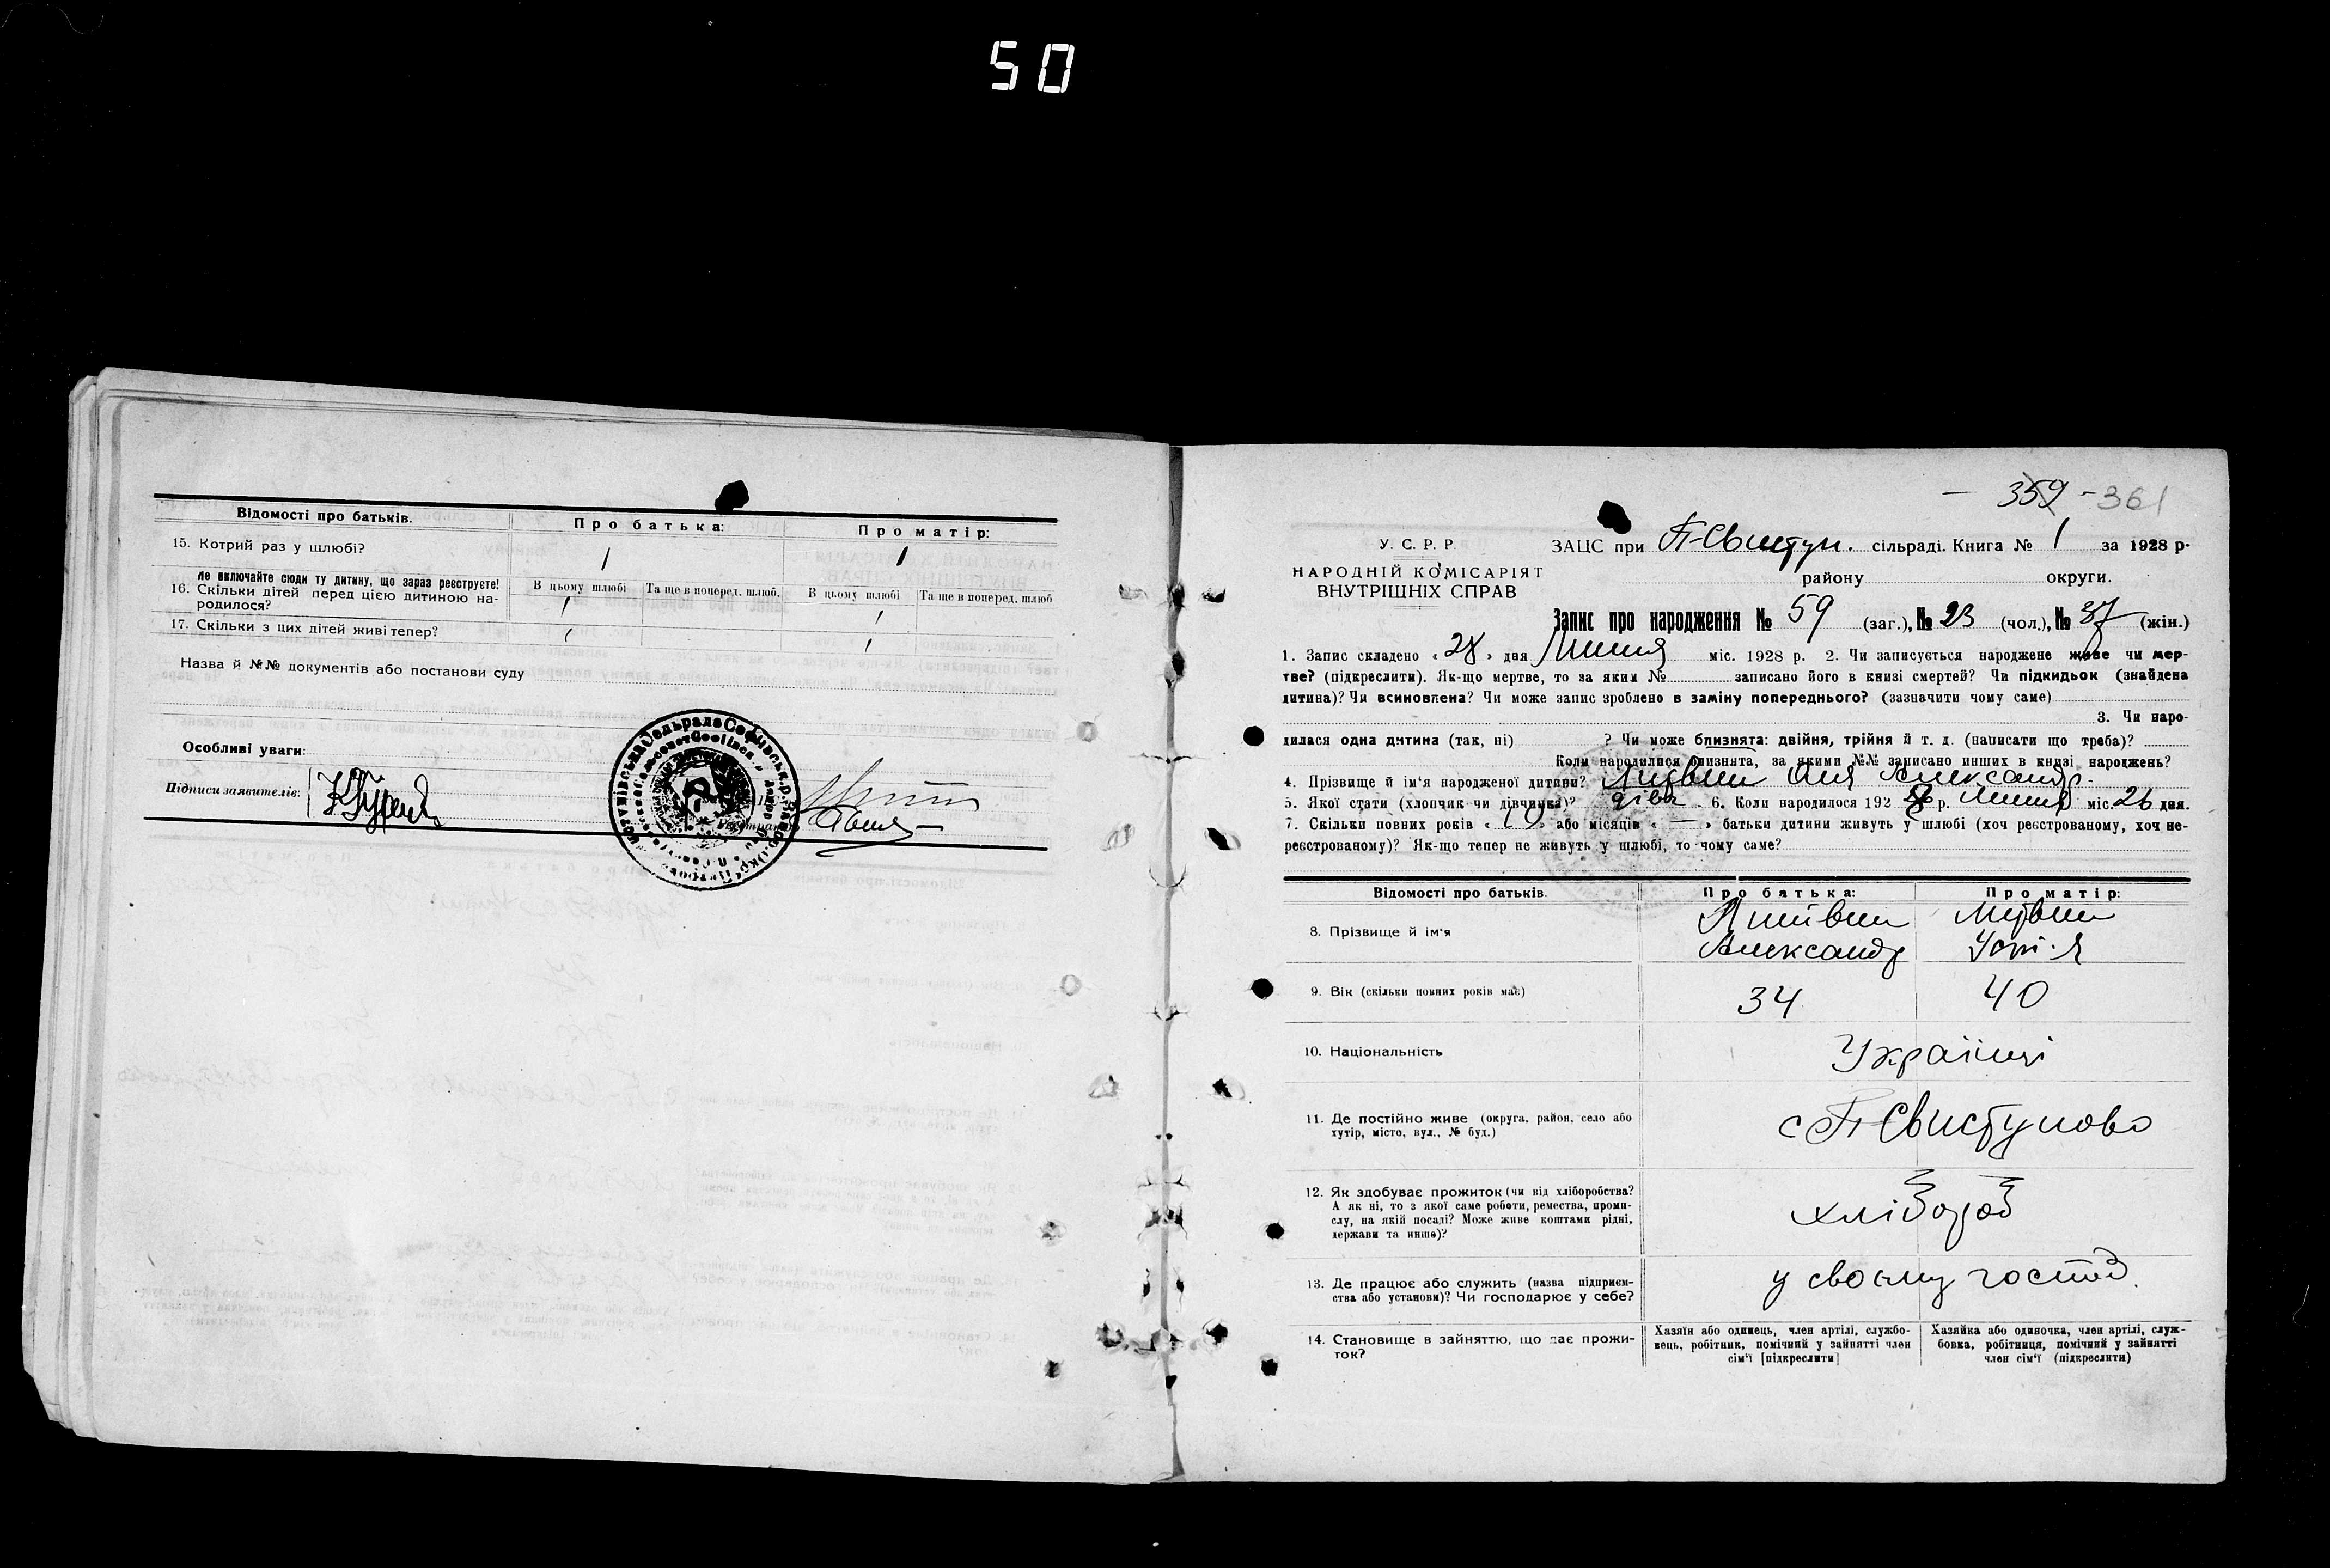 50
Відомості про батьків. Про батька: Про матір:
15. Котрий раз у шлюбі? 1 1
Не включайте сюди ту дитину, що зараз реєструєте!
16. Скільки дітей перед цією дитиною на-
родилося?
В цьому шлюбі Та ще в поперед. шлюб. В цьому шлюбі Та ще в поперед. шлюб
1 1
17. Скільки з цих дітей живі тепер? 1 1
Назва й №№ документів або постанови суду
Особливі уваги:
Підписи заявителів:
359 - 361
У. С. Р. Р.
НАРОДНІЙ КОМІСАРІЯТ
ВНУТРІШНІХ СПРАВ
ЗАЦС при П-Свистун. сільраді. Книга № 1 за 1928 р-
району округи.
Запис про народження № 59 (заг.), № 23 (чол.), № 37 (жін.)
1. Запис складено « 28 » дня Липня міс. 1928 р. 2. Чи записується народжене живе чи мер-
тве? (підкреслити). Як-що мертве, то за яким № записано його в книзі смертей? Чи підкидьок (знайдена
дитина)? Чи всиновлена? Чи може запис зроблено в заміну попереднього? (зазначити чому саме)
3. Чи наро-
дилася одна дитина (так, ні) ? Чи може близнята: двійня, трійня й т. д. (написати що треба)?
Коли народилися близнята, за якими №№ записано инших в книзі народжень?
4. Прізвище й ім'я народженої дитини? Литвин Оля Александр.
5. Якої стати (хлопчик чи дівчинка)? дівч. 6. Коли народилося 192 8 р. Липня міс. 26 дня.
7. Скільки повних років « 10 » або місяців « — » батьки дитини живуть у шлюбі (хоч реєстрованому, хоч не-
реєстрованому)? Як-що тепер не живуть у шлюбі, то чому саме?
Відомості про батьків. Про батька: Про матір:
8. Прізвище й ім'я
Литвин Литвин
Александр
9. Вік (скільки повних років має) 34 40
10. Національність Українці
11. Де постійно живе (округа, район, село або
хутір, місто, вул., № буд.)
с П-Свистуново
12. Як здобуває прожиток (чи від хліборобства?
А як ні, то з якої саме роботи, ремества, проми-
слу, на якій посаді? Може живе коштами рідні,
держави та инше)?
хлібороб
13. Де працює або служить (назва підприєм-
ства або установи)? Чи господарює у себе?
у своєму господ.
14. Становище в зайняттю, що дає прожи-
ток?
Хазяїн або одинець, член артілі, службо-
вець, робітник, помічний у зайнятті член
сім'ї [підкреслити]
Хазяйка або одиночка, член артілі, служ-
бовка, робітниця, помічний у зайнятті
член сім'ї (підкреслити)